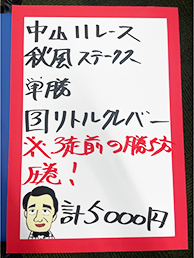 中山11レース
秋風ステークス
単勝
③リトルクレバー
※3走前の勝ち方
圧巻!
計5000円